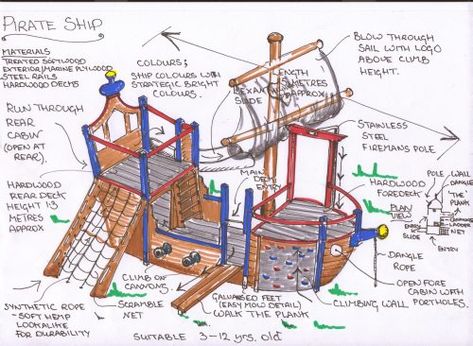 PIRATE SHIP
MATERIALS
TREATED SOFTWOOD
EXTERIOR/MARINE PLYWOOD
STEEL RAILS
HARDWOOD DECKS
COLOURS;
SHIP COLOURS WITH
STRATEGIC BRIGHT
COLOURS.
LENGTH
METRES
APPROX
BLOW THROUGH
SAIL WITH LOGO
ABOVE CLIMB
HEIGHT.
RUN THROUGH
REAR
CABIN
(OPEN AT
REAR).
SLIDE
STAINLESS
STEEL
FIREMANS POLE
MAIN
DECK
ENTRY
HARDWOOD
REAR DECK
HEIGHT 1.3
METRES
APPROX
HARDWOOD
FOREDECK
PLAN
VIEW
POLE
WALL
'THE
PLANK'
LADDER
NET
ENTRY
SLIDE
ENTRY
DANGLE
ROPE
OPEN FORE
CABIN WITH
PORTHOLES.
CLIMBING WALL
CLIMB ON
CANNONS.
SCRAMBLE
NET
GALVANISED FEET
(EASY MOW DETAIL)
WALK THE PLANK
SYNTHETIC ROPE
- SOFT HEMP
LOOKALIKE
FOR DURABILITY
SUITABLE 3-12 yrs. old